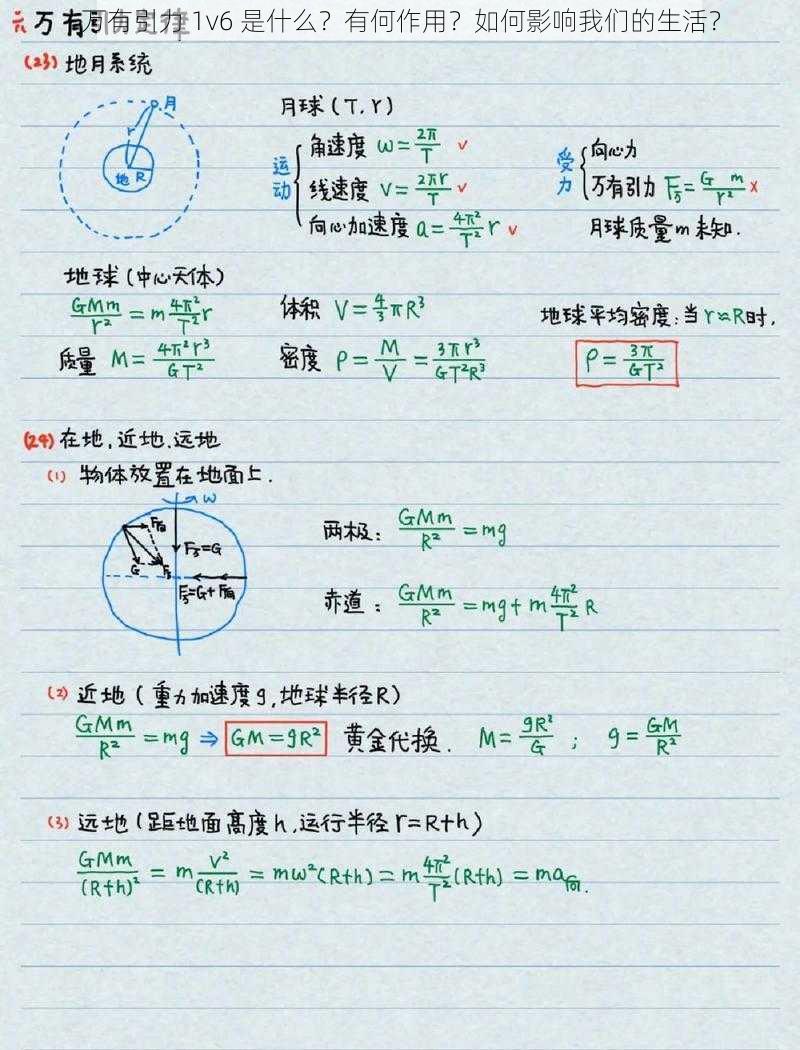 六 万有引力定律
万有引力 1v6 是什么？有何作用？如何影响我们的生活？
(23) 地月系统
月
r
地 R
月球 (T, r)
运动
角速度 ω = 2π/T ✓
线速度 v = 2πr/T ✓
向心加速度 a = 4π²/T² r ✓
受力
向心力
万有引力 F万 = G m/r² ×
月球质量m未知.
地球 (中心天体)
GMm/r² = m 4π²/T² r
体积 V = 4/3 πR³
地球平均密度: 当 r≈R时,
质量 M = 4π²r³/GT²
密度 ρ = M/V = 3πr³/GT²R³
ρ = 3π/GT²
(24) 在地, 近地. 远地
(1) 物体放置在地面上.
ω
F向
F万=G
G F万
F万=G+F向
两极: GMm/R² = mg
赤道: GMm/R² = mg + m 4π²/T² R
(2) 近地 (重力加速度 g, 地球半径R)
GMm/R² = mg ⇒ GM = gR² 黄金代换. M = gR²/G ; g = GM/R²
(3) 远地 (距地面高度 h, 运行半径 r = R+h)
GMm/(R+h)² = m v²/(R+h) = mω²(R+h) = m 4π²/T² (R+h) = ma向.